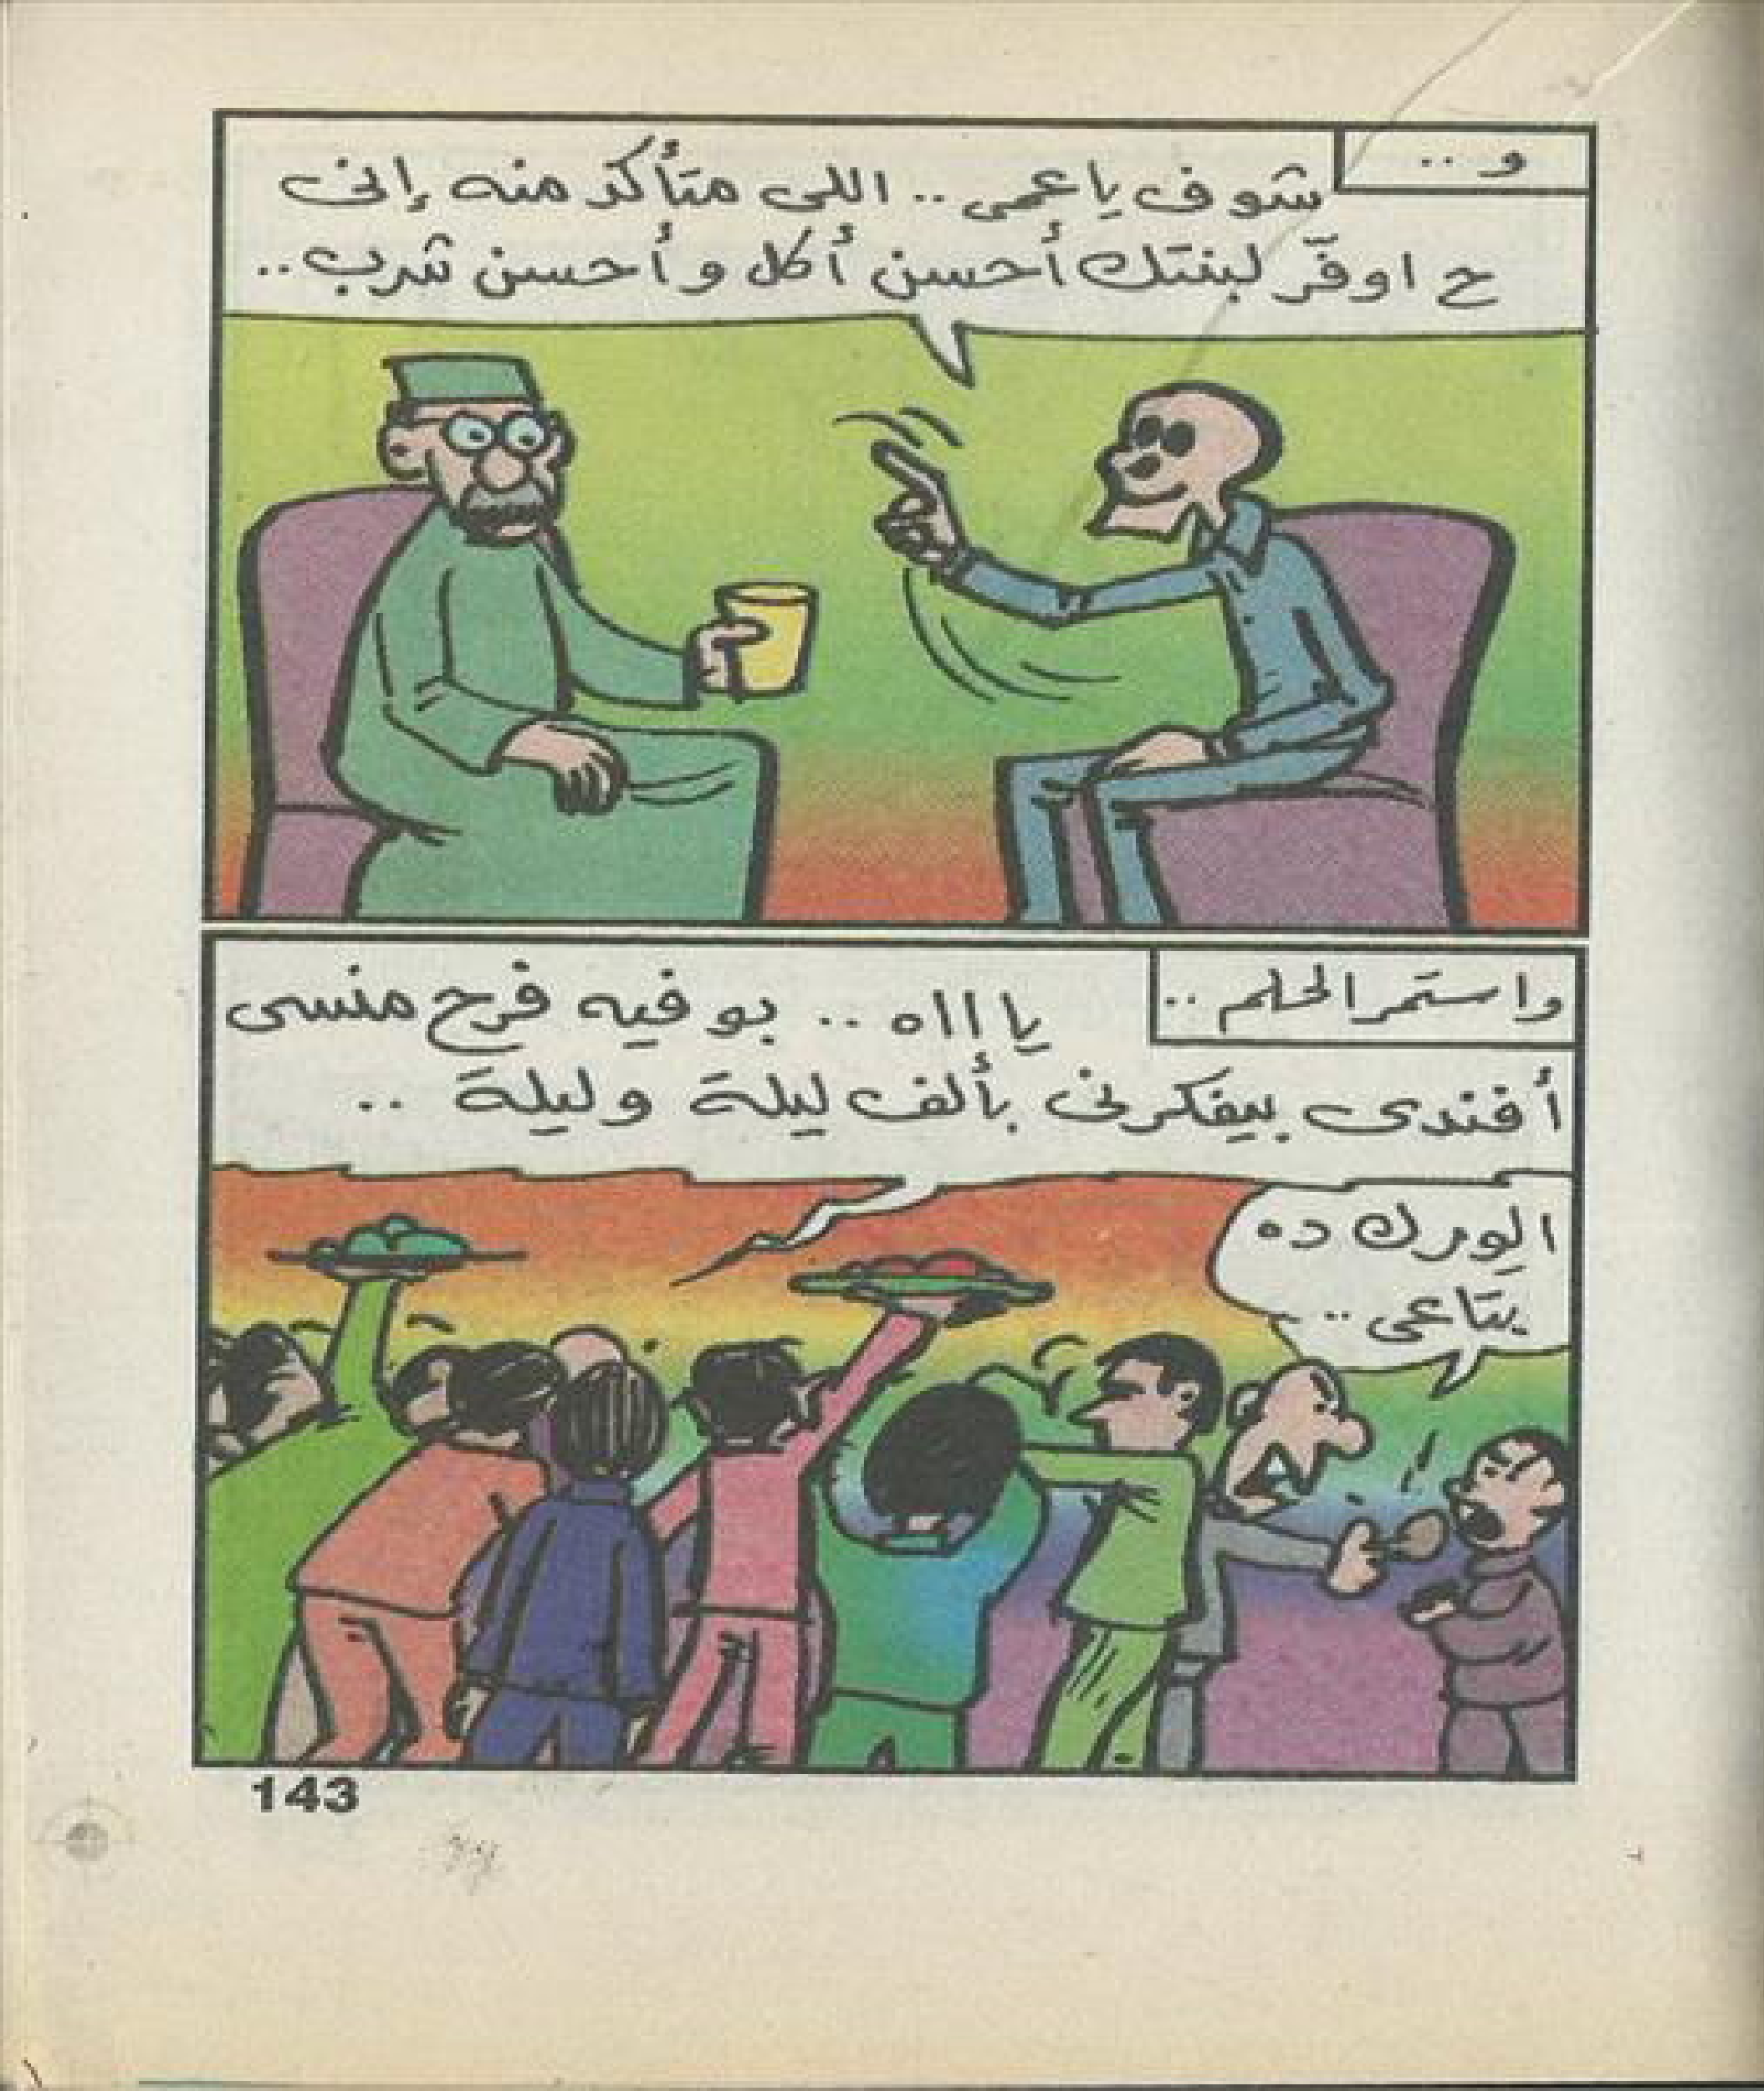 و ..
شوف ياعمى .. اللى متأكد منه إنى
ح اوفّر لبنتك أحسن أكل وأحسن شرب ..
واستمر الحلم ..
يا اااه .. بوفيه فرح منسى
أفندى بيفكرنى بألف ليلة وليلة ..
الورك ده
بتاعى ..
143